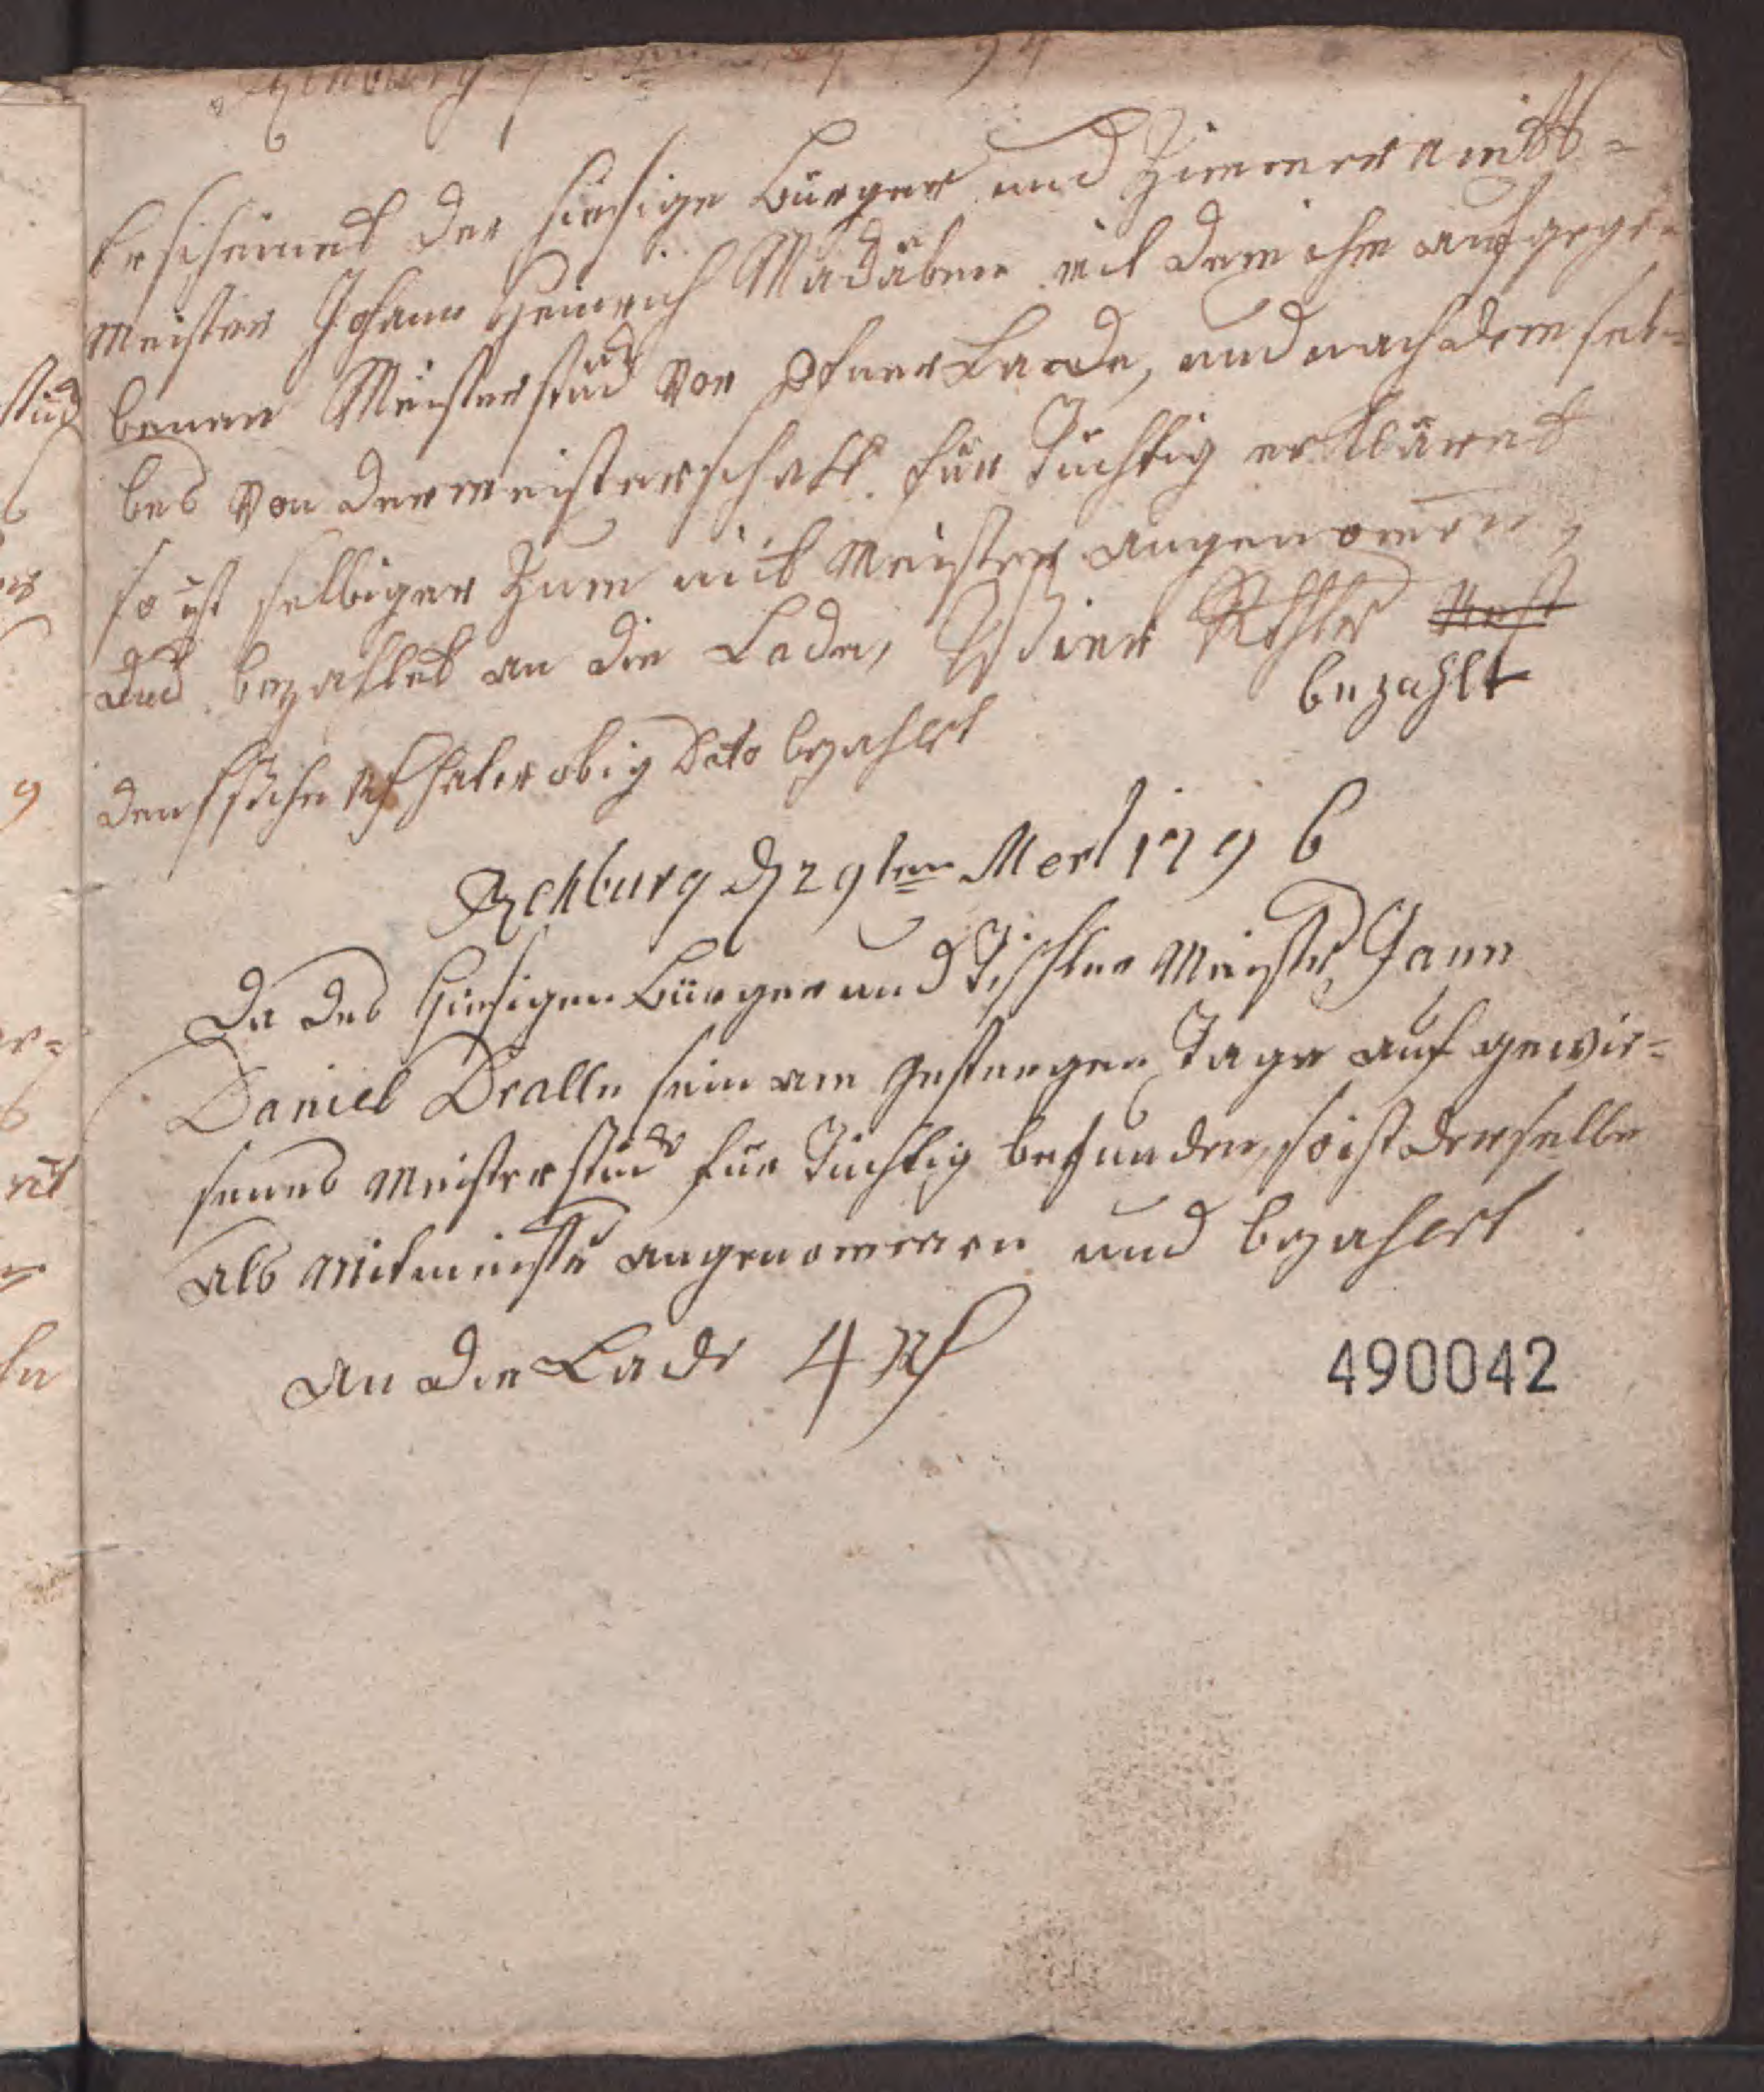 Rehburg
Erscheinet der hiesige Bürger und Zimmer amtts=
Meister Johann Heinrich mit dem ihm aufgege=
benen Meisterstück vor Ofner Laade, und nachdem sel=
bes von der meisterschafft für Tüchtig erkläret
so ist selbiger zum mit Meister angenomen,
und bezahlet an die Lade, Vier Rthlr
bezahlt
den hat er obig Dato bezahlet
Rehburg d 29ten Mertz 1796
Da des hiesigen Bürger und Tischler Meister Jann
Daniel Dralle sein am gestrigen Tage auf gewie=
senes Meisterstück für Tüchtig befunden, so ist derselbe
als Mitmeister angenommen und bezahlet
an die Lade 4 Rth
490042